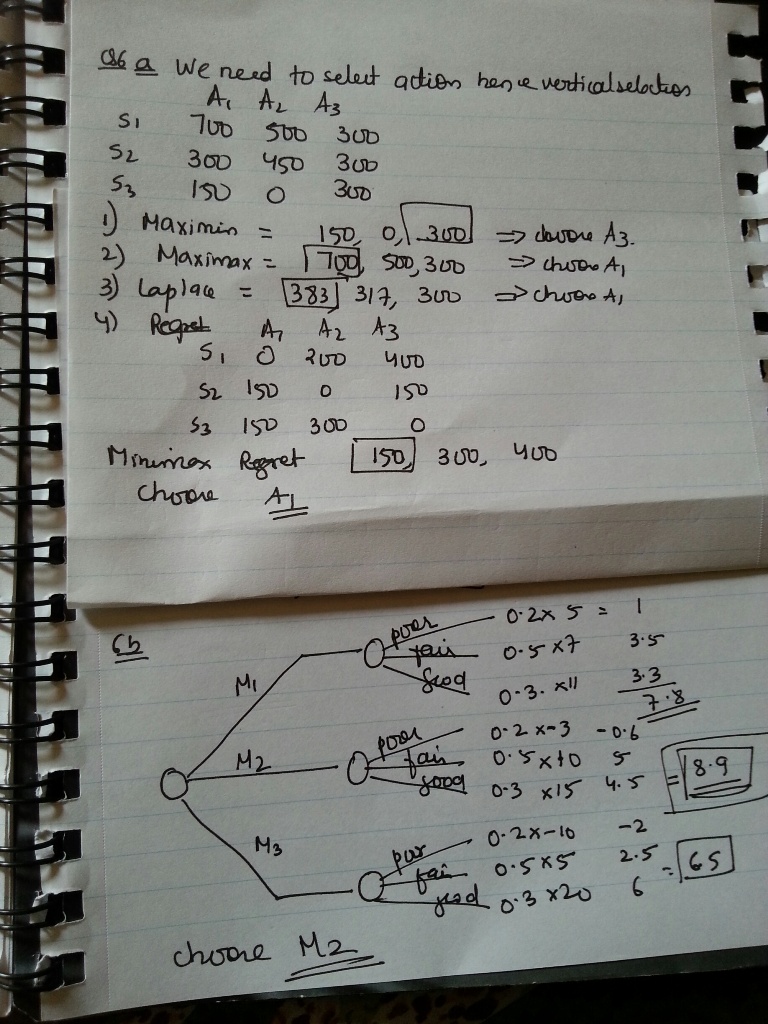 Q6 a We need to select action hence vertical selection
A1 A2 A3
S1 700 500 300
S2 300 450 300
S3 150 0 300
1) Maximin = 150, 0, 300 ⇒ choose A3.
2) Maximax = 700, 500, 300 ⇒ choose A1
3) Laplace = 383, 317, 300 ⇒ choose A1
4) Regret A1 A2 A3
S1 0 200 400
S2 150 0 150
S3 150 300 0
Minimax Regret 150, 300, 400
Choose A1
6b
M1
poor 0.2 x 5 = 1
fair 0.5 x 7 3.5
good 0.3. x 11 3.3
7.8
M2
poor 0.2 x -3 -0.6
fair 0.5 x 10 5
good 0.3 x 15 4.5 = 8.9
M3
poor 0.2 x -10 -2
fair 0.5 x 5 2.5
good 0.3 x 20 6 = 65
choose M2